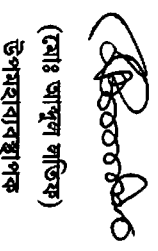 (মোঃ আব্দুল লতিফ)
উপমহাব্যবস্থাপক